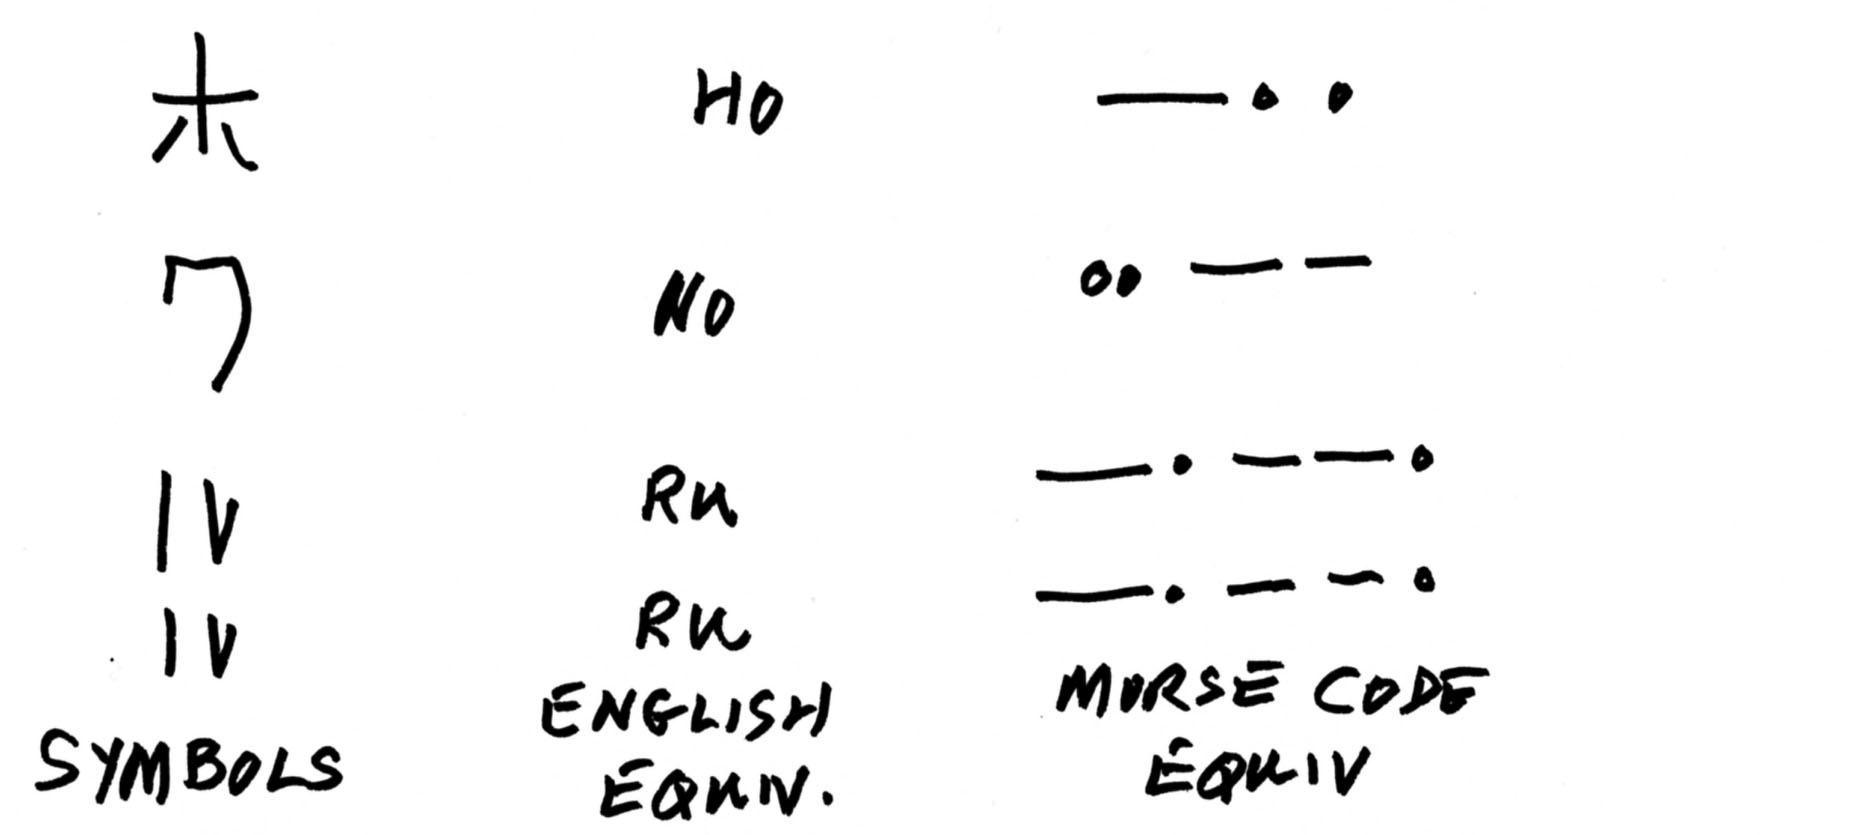 ホ HO —··
ワ NO ··——
ル RU —·——·
ル RU —·——·
SYMBOLS
ENGLISH
EQUIV.
MORSE CODE
EQUIV